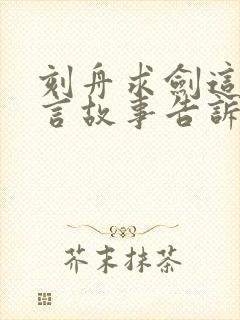 刻舟求劍這
言故事告訴
芥末抹茶